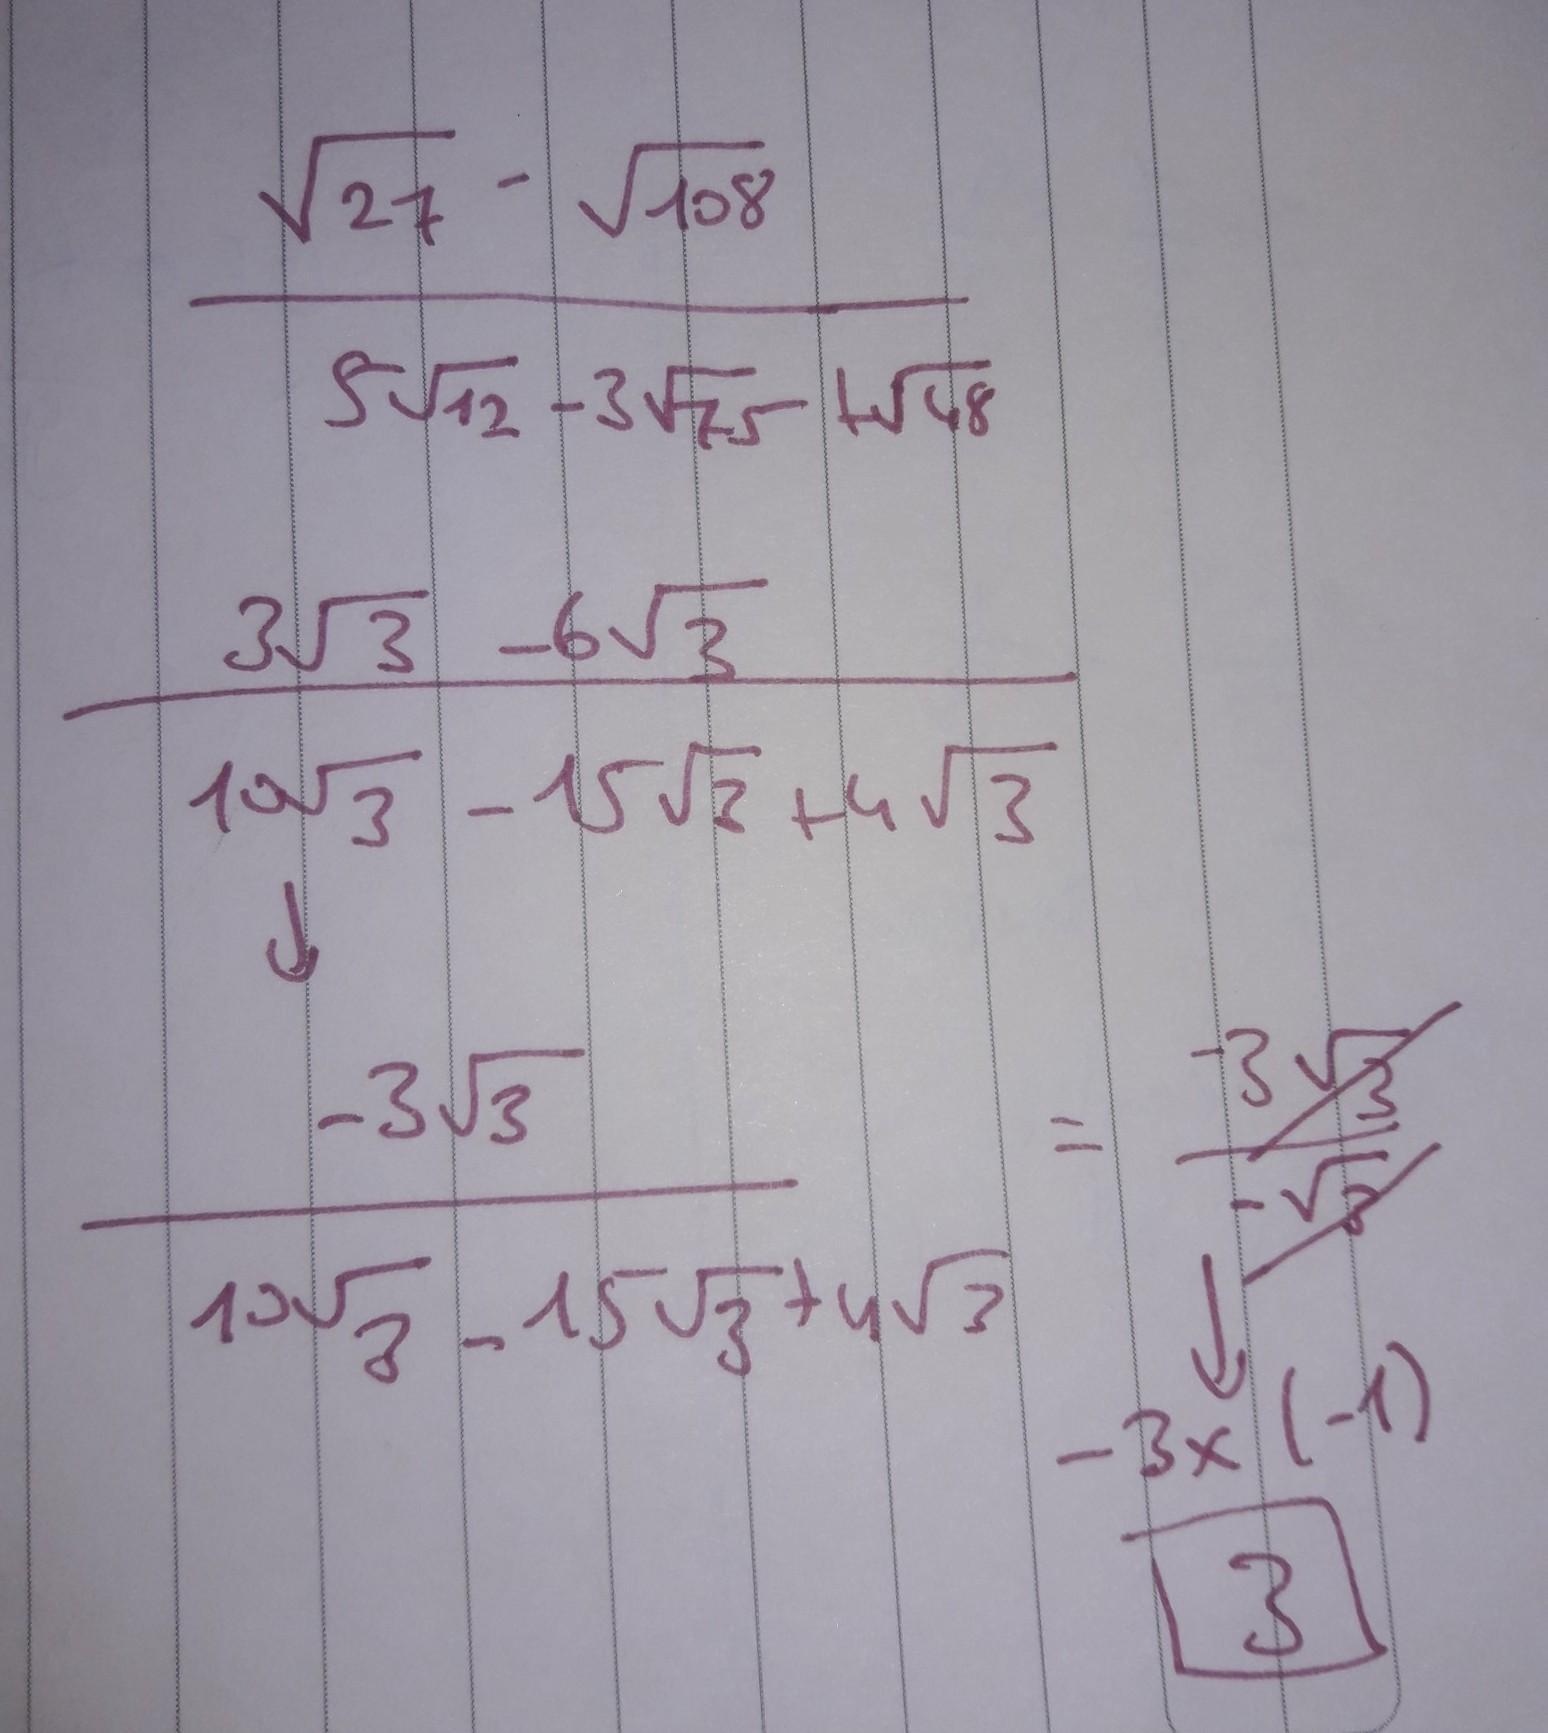 √27 - √108
5√12 - 3√75 + √48
3√3 - 6√3
10√3 - 15√3 + 4√3
↓
-3√3
10√3 - 15√3 + 4√3
= -3√3
-√3
↓
-3x (-1)
3